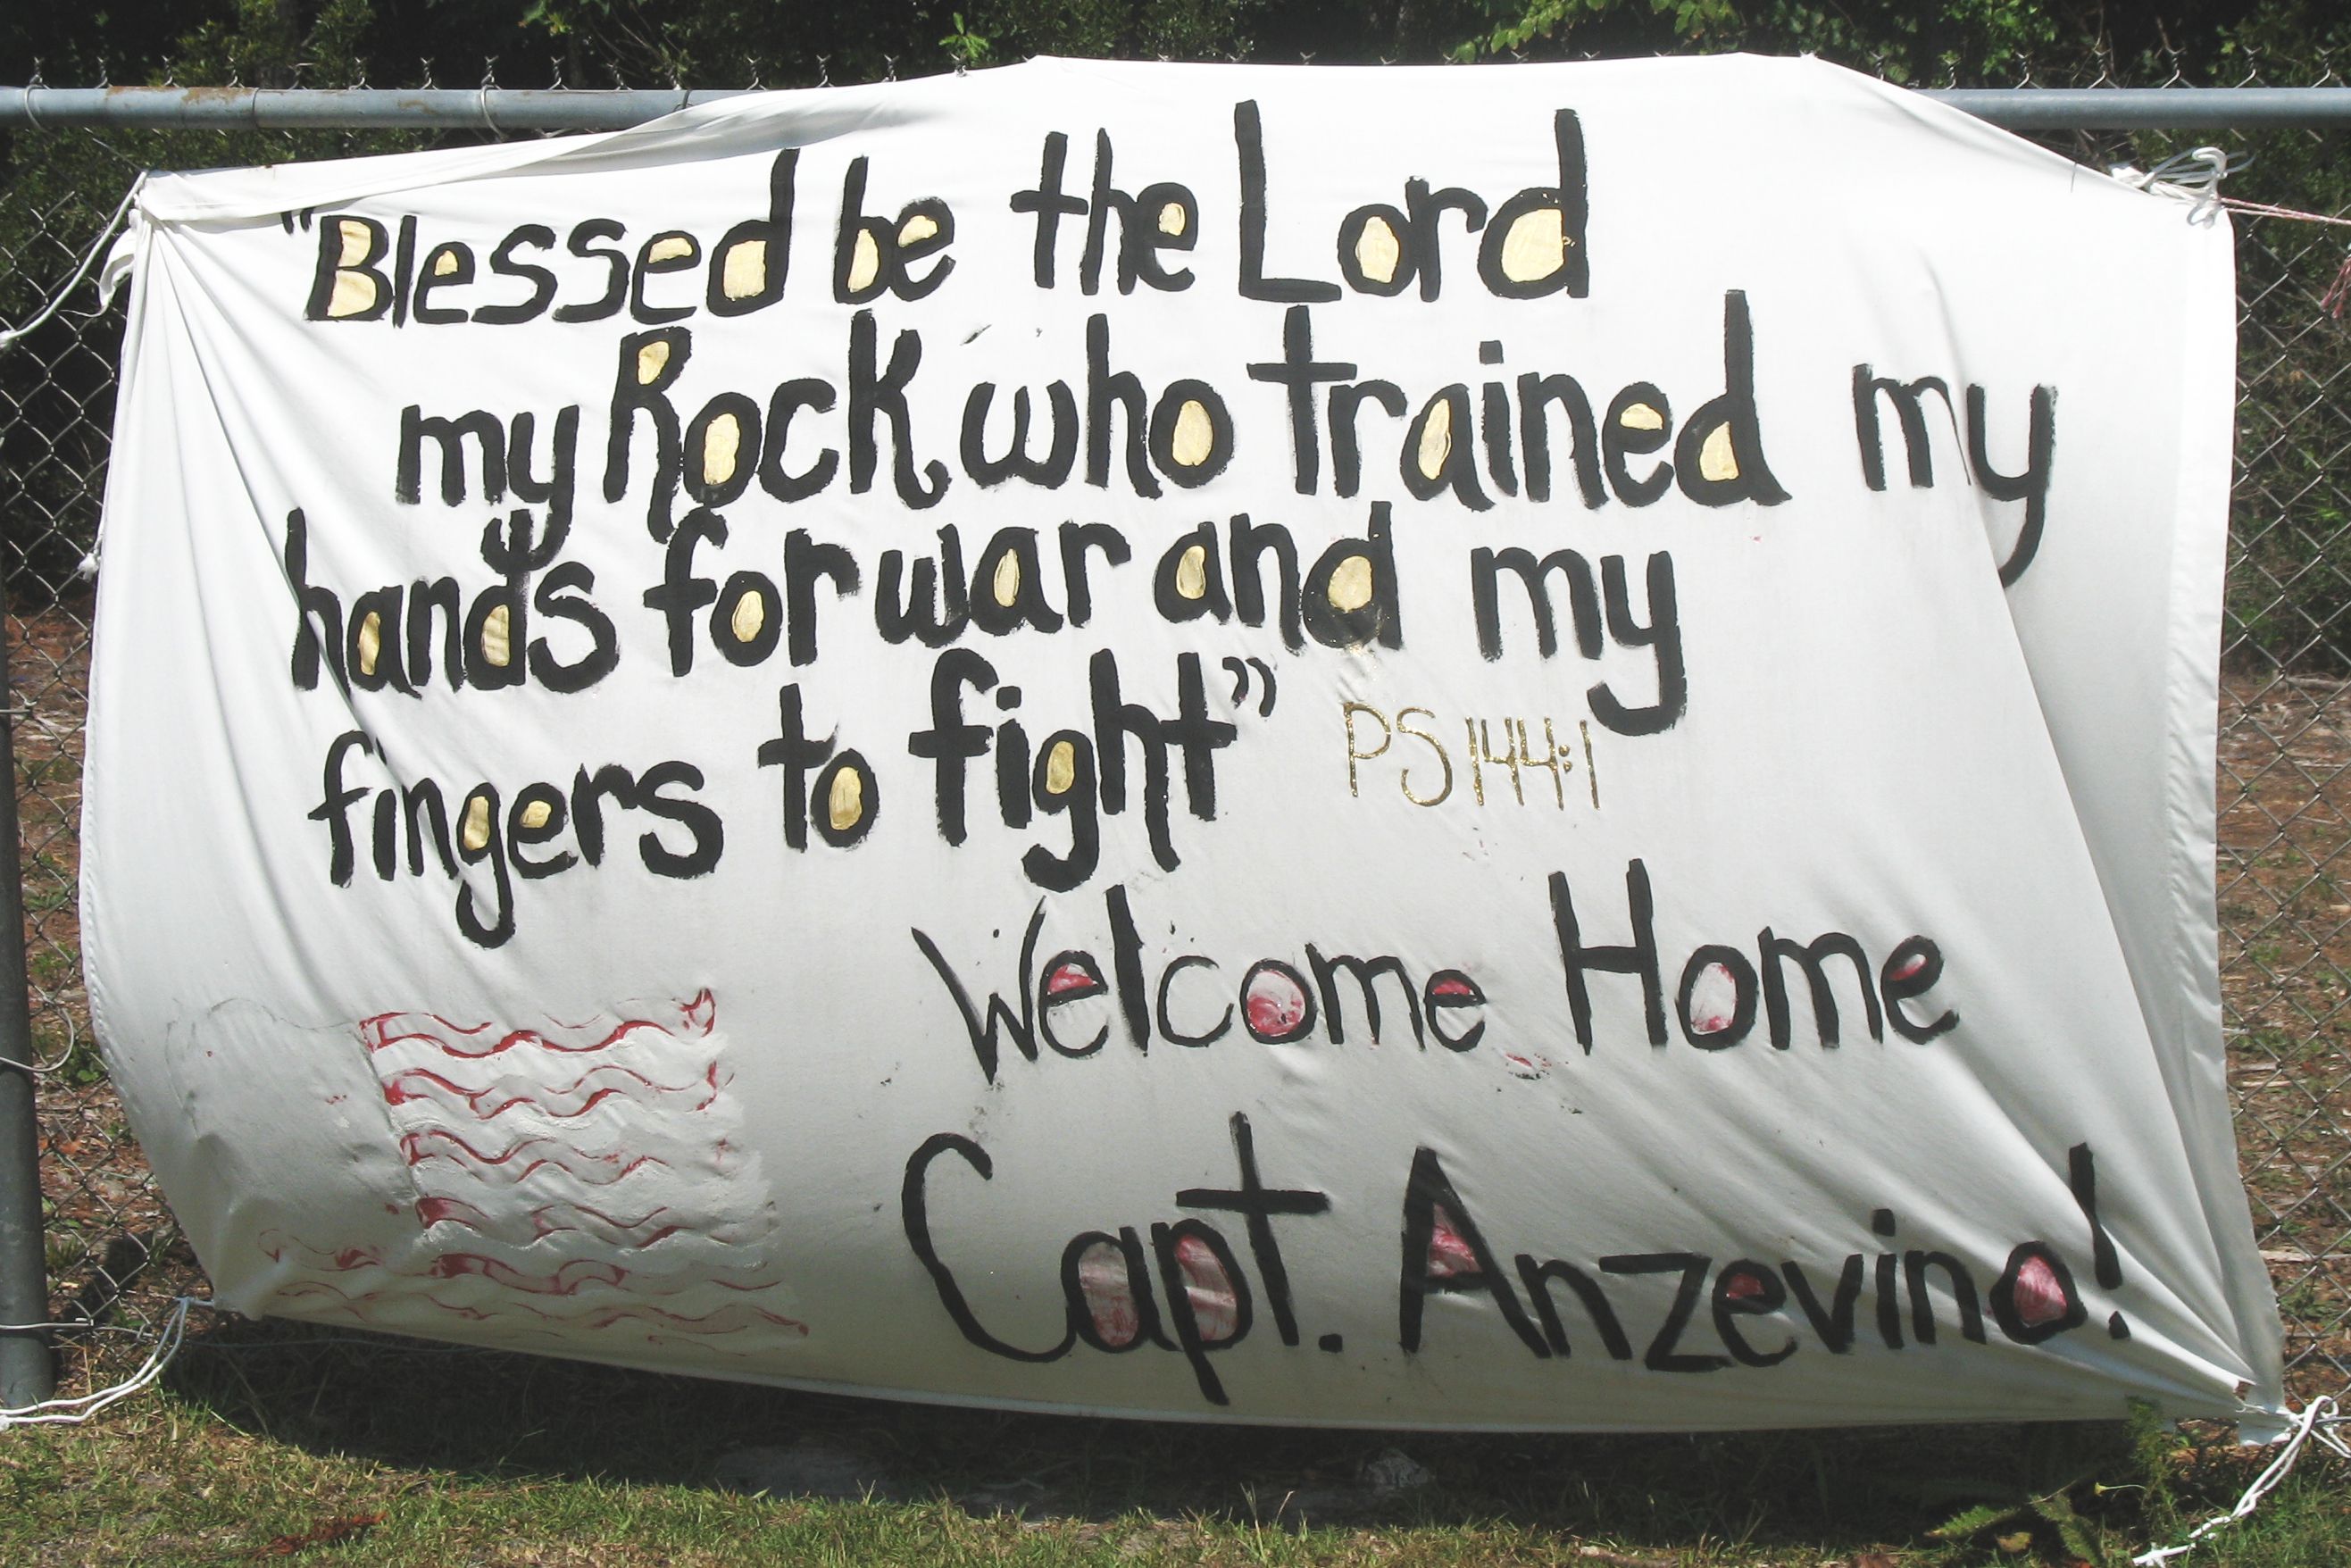 "Blessed be the Lord
my Rock who trained my
hands for war and my
fingers to fight" PS 144:1
Welcome Home
Capt. Anzevino!